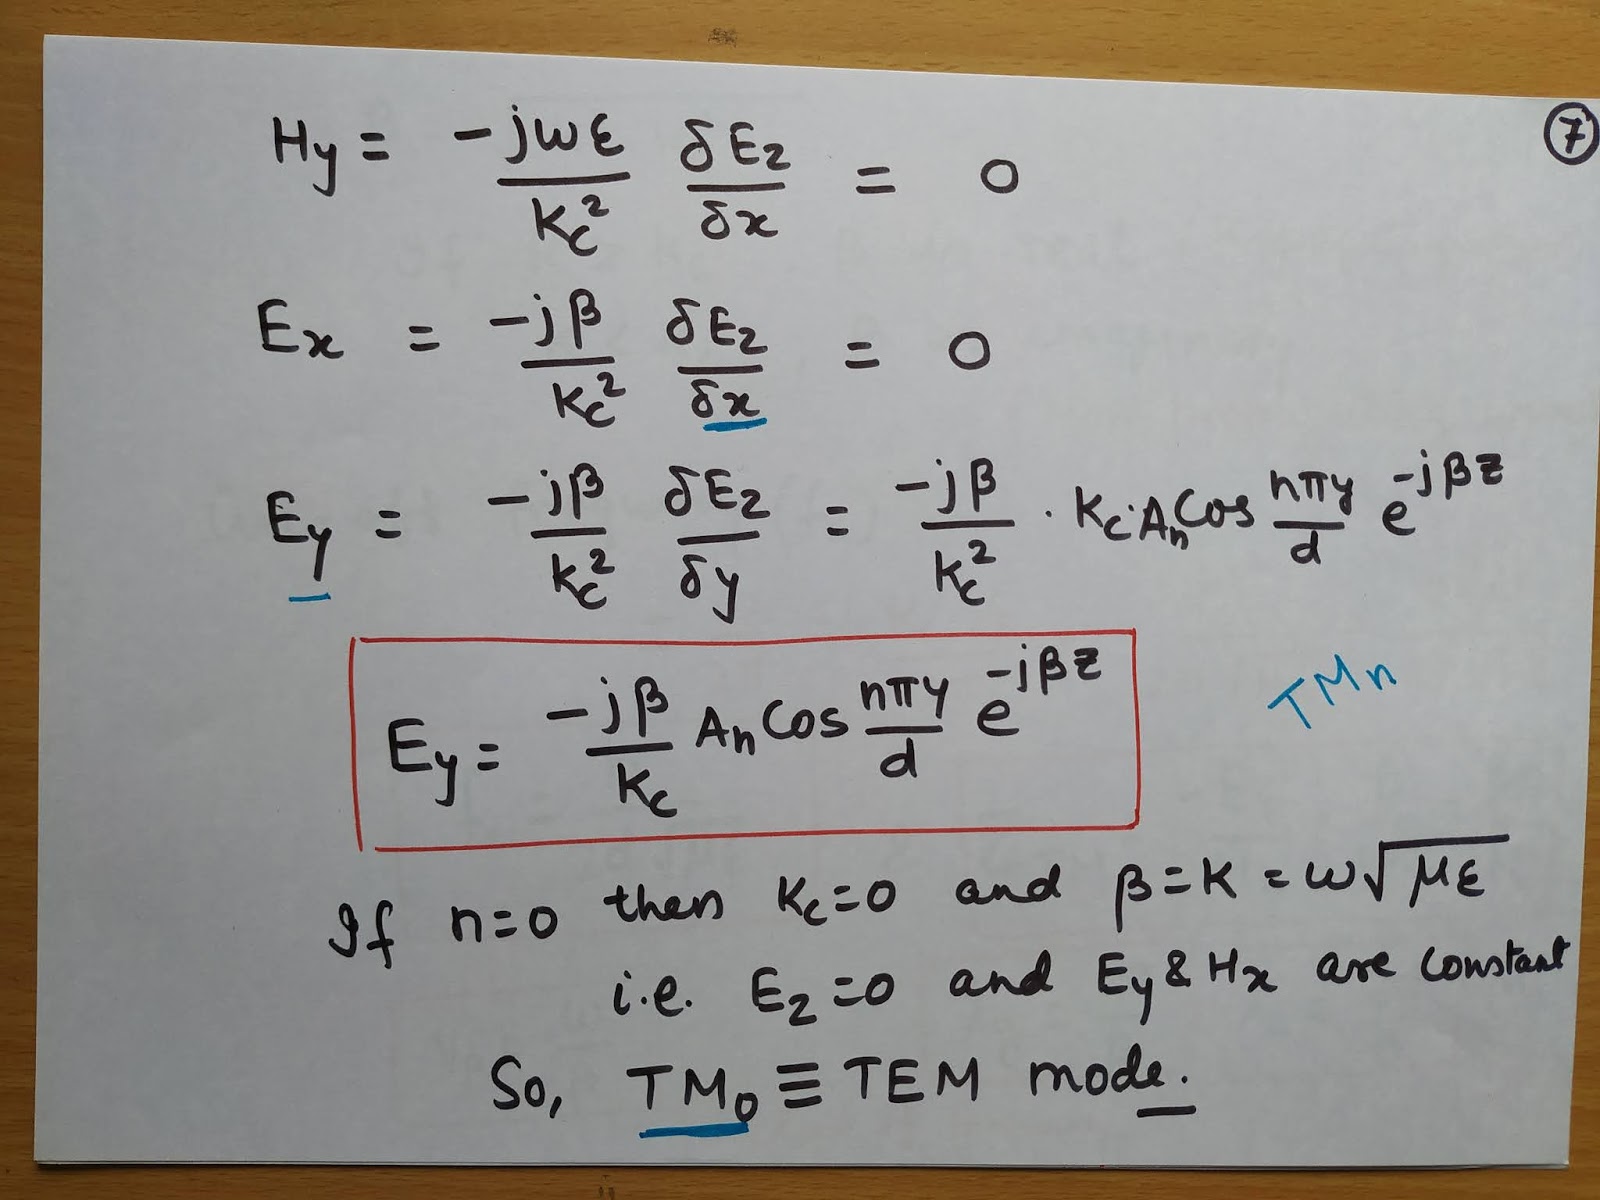 7
Hy = -jωε/Kc² δEz/δx = 0
Ex = -jβ/Kc² δEz/δx = 0
Ey = -jβ/Kc² δEz/δy = -jβ/Kc² · Kc·An Cos nπy/d e^-jβz
Ey = -jβ/Kc An Cos nπy/d e^-jβz
TMn
If n=0 then Kc=0 and β=K=ω√με
i.e. Ez=0 and Ey & Hx are constant
So, TM₀ ≡ TEM mode.